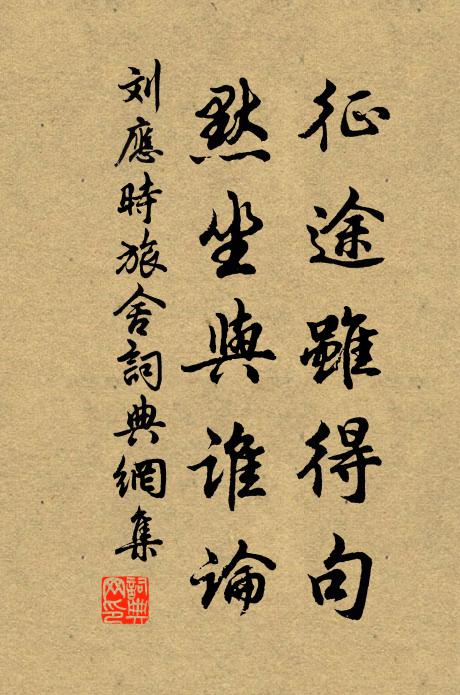 征途雖得句
默坐與誰論
刘應時旅舍詞典網集
詞典
网印